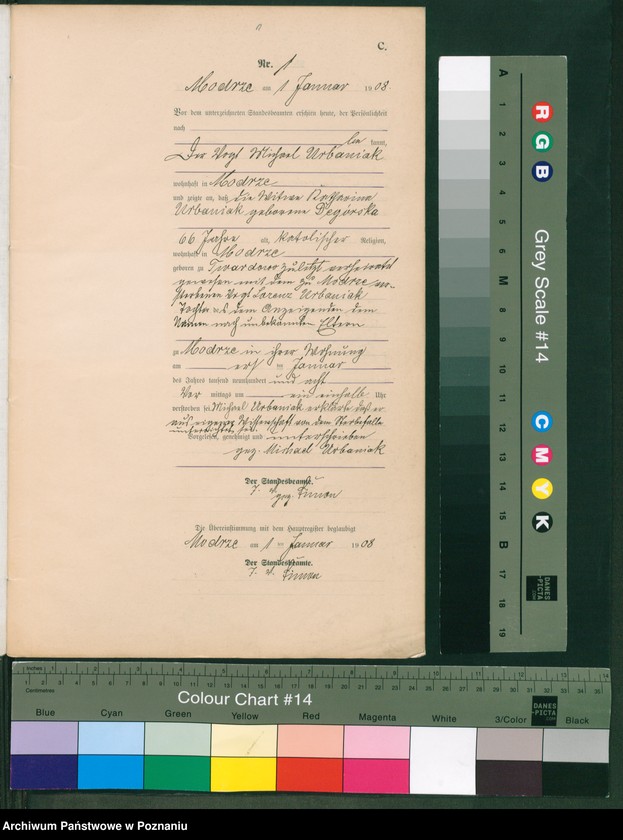 C.
Nr. 1
Modrze am 1 Januar 1908
Vor dem unterzeichneten Standesbeamten erschien heute, der Persönlichkeit
nach
kannt,
Der Vogt Michael Urbaniak
wohnhaft in Modrze
und zeigte an, daß die Witwe Katharina
Urbaniak geborene Degórska
66 Jahre alt, katolischer Religion,
wohnhaft in Modrze
geboren zu Twardowo zuletzt verheiratet
gewesen mit dem zu Modrze ver-
storbenen Vogt Lorenz Urbaniak
Tochter der dem Anzeigenden dem
Namen nach unbekannten Eltern
zu Modrze in ihrer Wohnung
am ersten Januar
des Jahres tausend neunhundert und acht
Vor mittags um ein einhalb Uhr
verstorben sei. Michael Urbaniak erklärte daß er
aus eigener Wissenschaft von dem Sterbefalle
unterrichtet sei.
Vorgelesen, genehmigt und unterschrieben
gez. Michael Urbaniak
Der Standesbeamte.
J. V.
gez. Simon
Die Übereinstimmung mit dem Hauptregister beglaubigt
Modrze am 1 ten Januar 1908
Der Standesbeamte.
J. V. Simon
A 1 2 3 4 5 6 M 8 9 10 11 12 13 14 15 B 17 18 19
R G B
Grey Scale #14
C M Y K
DANES
-PICTA
.COM
Inches 1 2 3 4 5 6 7 8 9 10 11 12 13 14
Centimetres
Colour Chart #14
Blue Cyan Green Yellow Red Magenta White 3/Color Black
DANES
-PICTA
.COM
Archiwum Państwowe w Poznaniu